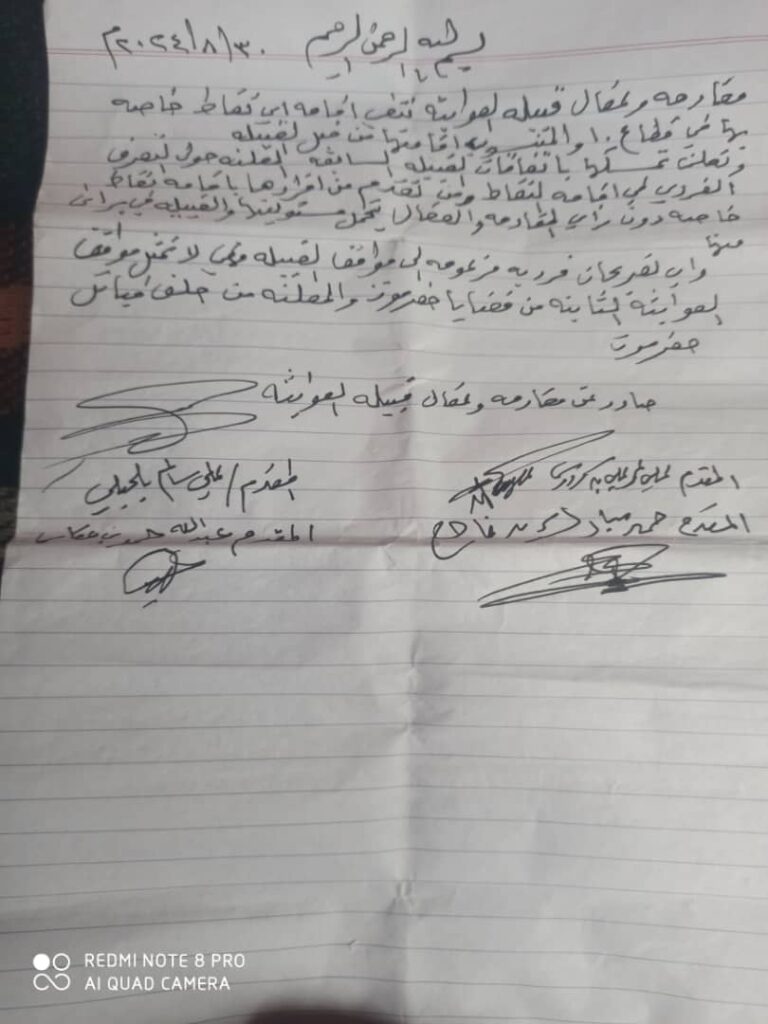 بسم الله الرحمن الرحيم ٢٠٢٤/٨/٣٠م
مقادمه وعقال قبيله العوابثه تنفي اقامه اي نقاط خاصه
بها في قطاع ١٠ والمنتسوب اقامتها من قبل القبيله
وتعلن تمسكها باتفاقات القبيله السابقه المعلنه حول التصرف
الفردي في اقامه النقاط ومن تقدم من افرادها باقامه نقاط
خاصه دون راي المقادمه والعقال يتحمل مسئوليتها والقبيله في براى
منها
واي تصريحات فرديه مزعومه الى مواقف القبيله فهي لا تمثل مواقف
العوابثه الثابته من قضايا حضرموت والمعلنه من حلف قبائل
حضرموت
صادر عن مقادمه وعقال قبيله العوابثه
المقدم
المقدم / علي سالم بلجبلي
المقدم حمد مبارك
المقدم عبدالله
REDMI NOTE 8 PRO
AI QUAD CAMERA